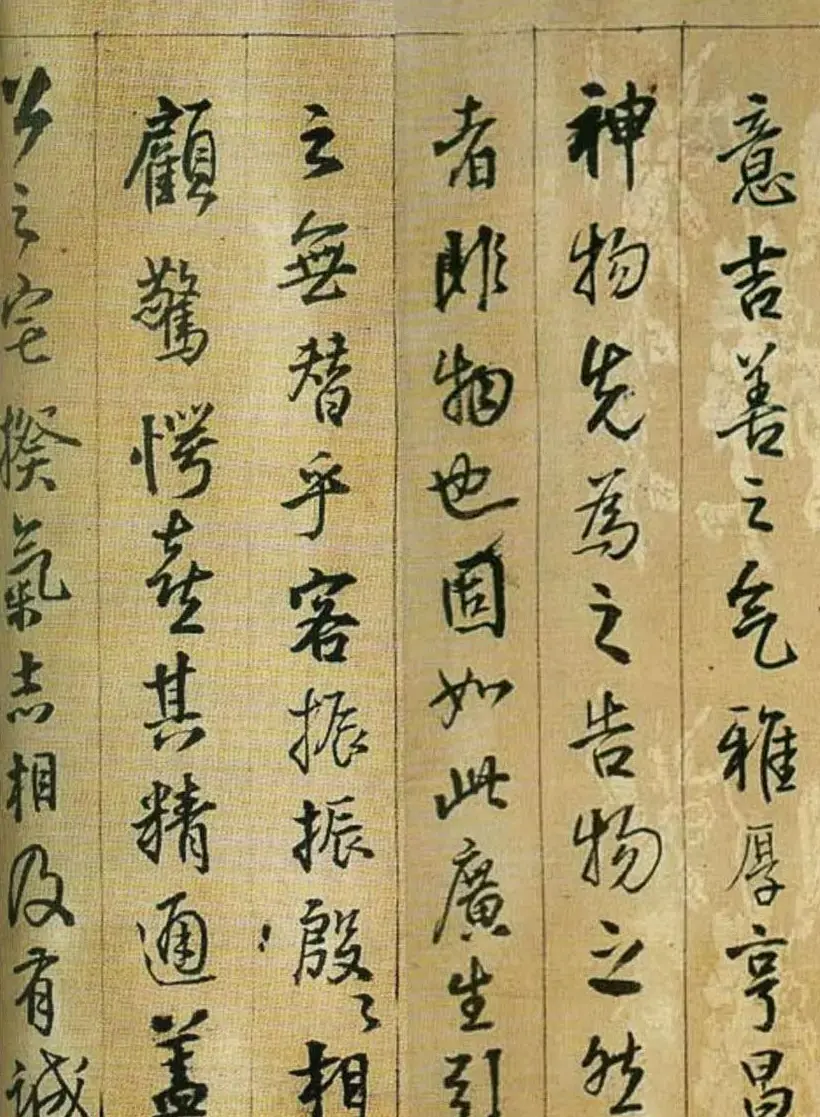 意吉善之气雅厚亨昌
神物先為之告物之然
者即物也固如此廣生引
之無替乎客振振殷〻相
顧驚愕嘉其精通蓋
公之宅揆氣志相及有誠